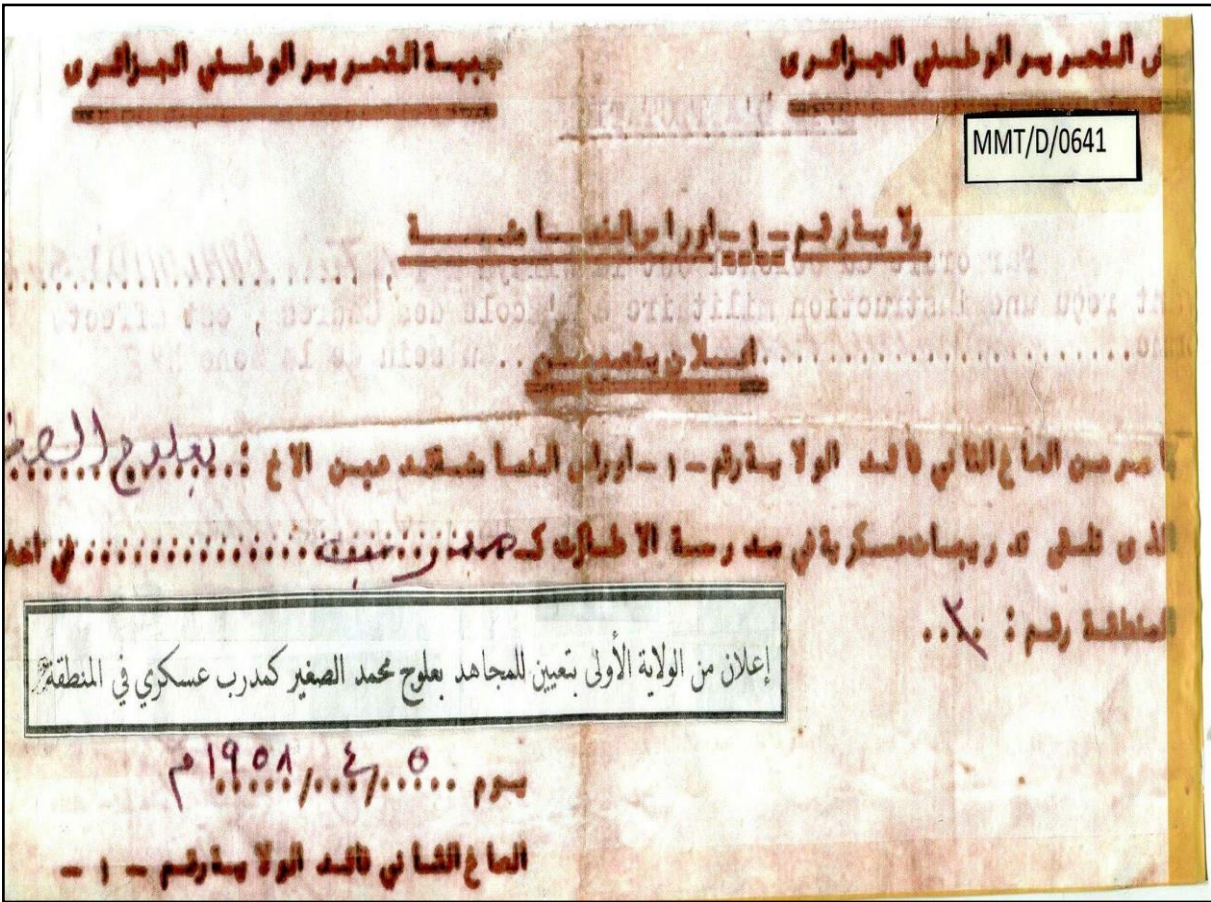 جيش التحرير الوطني الجزائري
جبهة التحرير الوطني الجزائري
MMT/D/0641
ولاية رقم -١- اوراس النمامشة
اعلان بتعيين
بامر من الصاغ الثاني قائد الولاية رقم -١- اوراس النمامشة قد عين الاخ : بعلوج الصغ
الذي تلقى تدريبات عسكرية في مدرسة الاطارات كـ مدرب في احد
المنطقة رقم : ٢
إعلان من الولاية الأولى بتعيين للمجاهد بعلوج محمد الصغير كمدرب عسكري في المنطقة
يوم ٥/٤/١٩٥٨م
الصاغ الثاني قائد الولاية رقم -١-